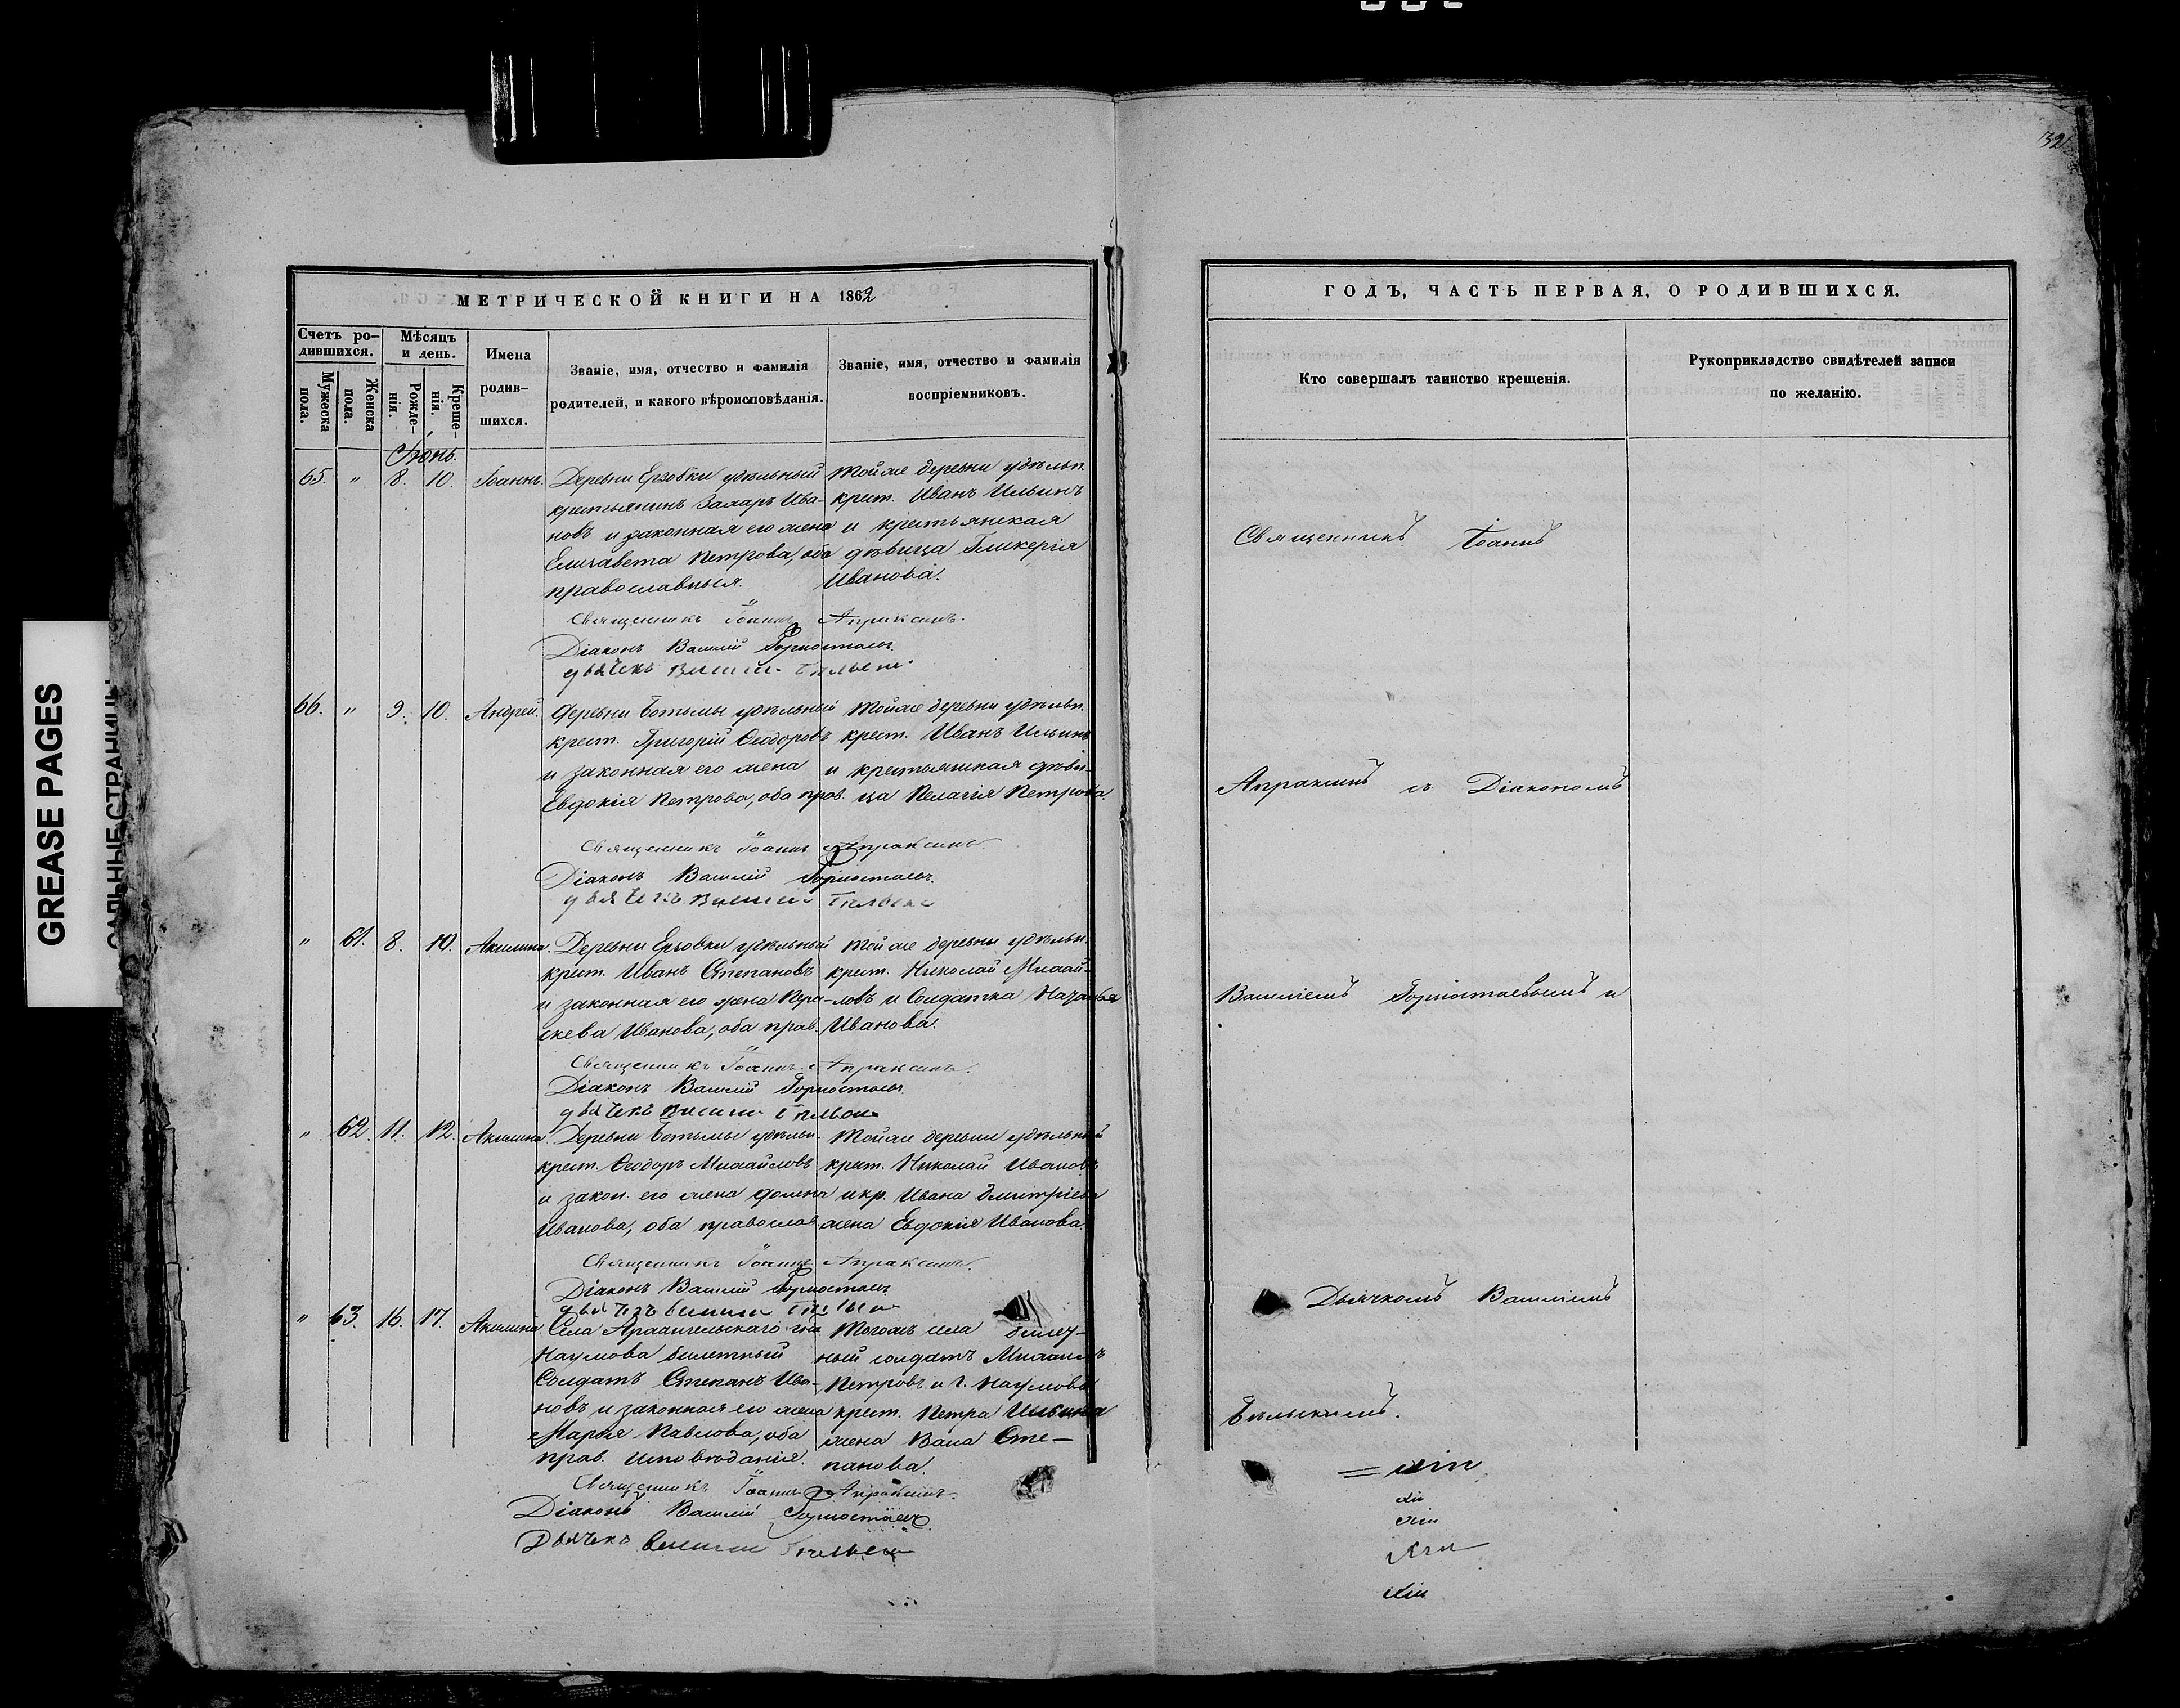 32
МЕТРИЧЕСКОЙ КНИГИ НА 1862
Счетъ ро-
дившихся.
Мужеска
пола.
Женска
пола.
Мѣсяцъ
и день.
Рожде-
нія.
Креще-
нія.
Имена
родив-
шихся.
Званіе, имя, отчество и фамилія
родителей, и какого вѣроисповѣданія.
Званіе, имя, отчество и фамилія
воспріемниковъ.
Іюнь.
65. " 8. 10. Іоаннъ.
Деревни Ерзовки удѣльный
крестьянинъ Захаръ Ива-
новъ и законная его жена
Елизавета Петрова, оба
православныя.
Тойже деревни удѣльн.
крест. Иванъ Ильинъ
и крестьянская
дѣвица Гликерія
Иванова.
Священникъ Іоаннъ Апраксинъ.
Діаконъ Василій Горностаевъ
дьячекъ Василій
66. " 9. 10. Андрей.
Деревни Ботьмы удѣльный
крест. Григорій Ѳеодоровъ
и законная его жена
Евдокія Петрова, оба прав.
Тойже деревни удѣльн.
крест. Иванъ Ильинъ
и крестьянская дѣви-
ца Пелагія Петрова.
Священникъ Іоаннъ Апраксинъ.
Діаконъ Василій Горностаевъ.
дьячекъ Василій
" 61. 8. 10. Акилина.
Деревни Ерзовки удѣльный
крест. Иванъ Степановъ
и законная его жена Пара-
скева Иванова, оба прав.
Тойже деревни удѣльн.
крест. Николай Михай-
ловъ и Солдатка Наталья
Иванова.
Священникъ Іоаннъ Апраксинъ.
Діаконъ Василій Горностаевъ
дьячекъ Василій
" 62. 11. 12. Акилина.
Деревни Ботьмы удѣльн.
крест. Ѳеодоръ Михайловъ
и закон. его жена Домна
Иванова, оба православ.
Тойже деревни удѣльный
крест. Николай Ивановъ
и кр. Ивана Дмитріева
жена Евдокія Иванова.
Священникъ Іоаннъ Апраксинъ.
Діаконъ Василій Горностаевъ
дьячекъ Василій
" 63. 16. 17. Акилина.
Села Архангельскаго
Наумова билетный
Солдатъ Степанъ Ива-
новъ и законная его жена
Марія Павлова, оба
прав. исповѣданія.
Тогоже села
ный солдатъ Михаилъ
Петровъ и Наумова
крест. Петра Ильина
жена Васа Сте-
панова.
Священникъ Іоаннъ Апраксинъ.
Діаконъ Василій Горностаевъ
Дьячекъ Василій
ГОДЪ, ЧАСТЬ ПЕРВАЯ, О РОДИВШИХСЯ.
Кто совершалъ таинство крещенія.
Рукоприкладство свидѣтелей записи
по желанію.
Священникъ Іоаннъ
Апраксинъ съ Діакономъ
Василіемъ Горностаевымъ и
Дьячкомъ Василіемъ
Бѣльскимъ.
GREASE PAGES
САЛЬНЫЕ СТРАНИЦЫ